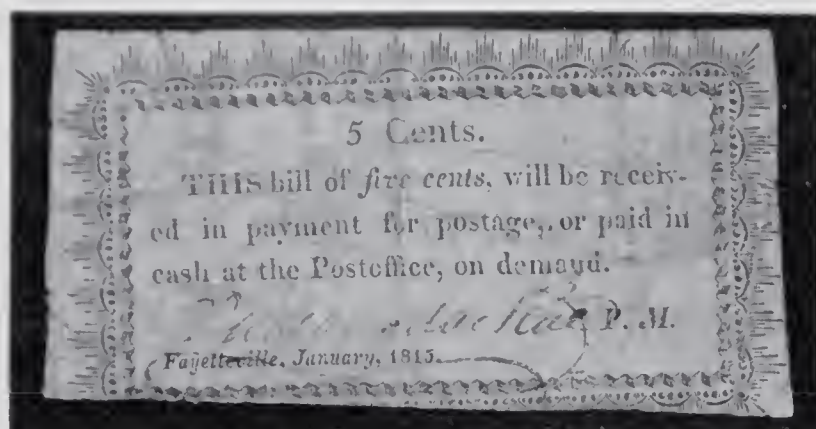 5 Cents.
THIS bill of five cents, will be receiv-
ed in payment for postage, or paid in
cash at the Postoffice, on demand.
P. M.
Fayetteville, January, 1815.